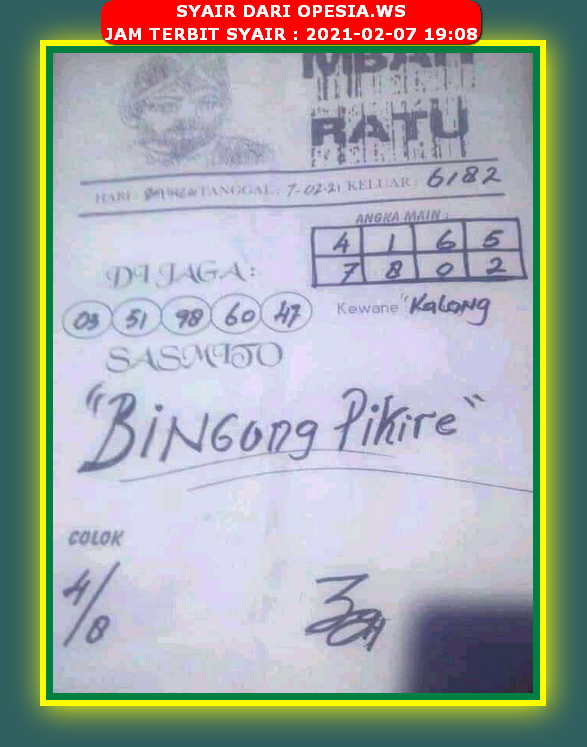 SYAIR DARI OPESIA.WS
JAM TERBIT SYAIR : 2021-02-07 19:08
MBAH
RATU
HARI : TANGGAL : 7-02-21 KELUAR : 6182
ANGKA MAIN :
4 1 6 5
7 8 0 2
DI JAGA :
03 51 98 60 47
Kewane "Kalong
SASMITO
"BiNGong Pikire"
COLOK
4/8